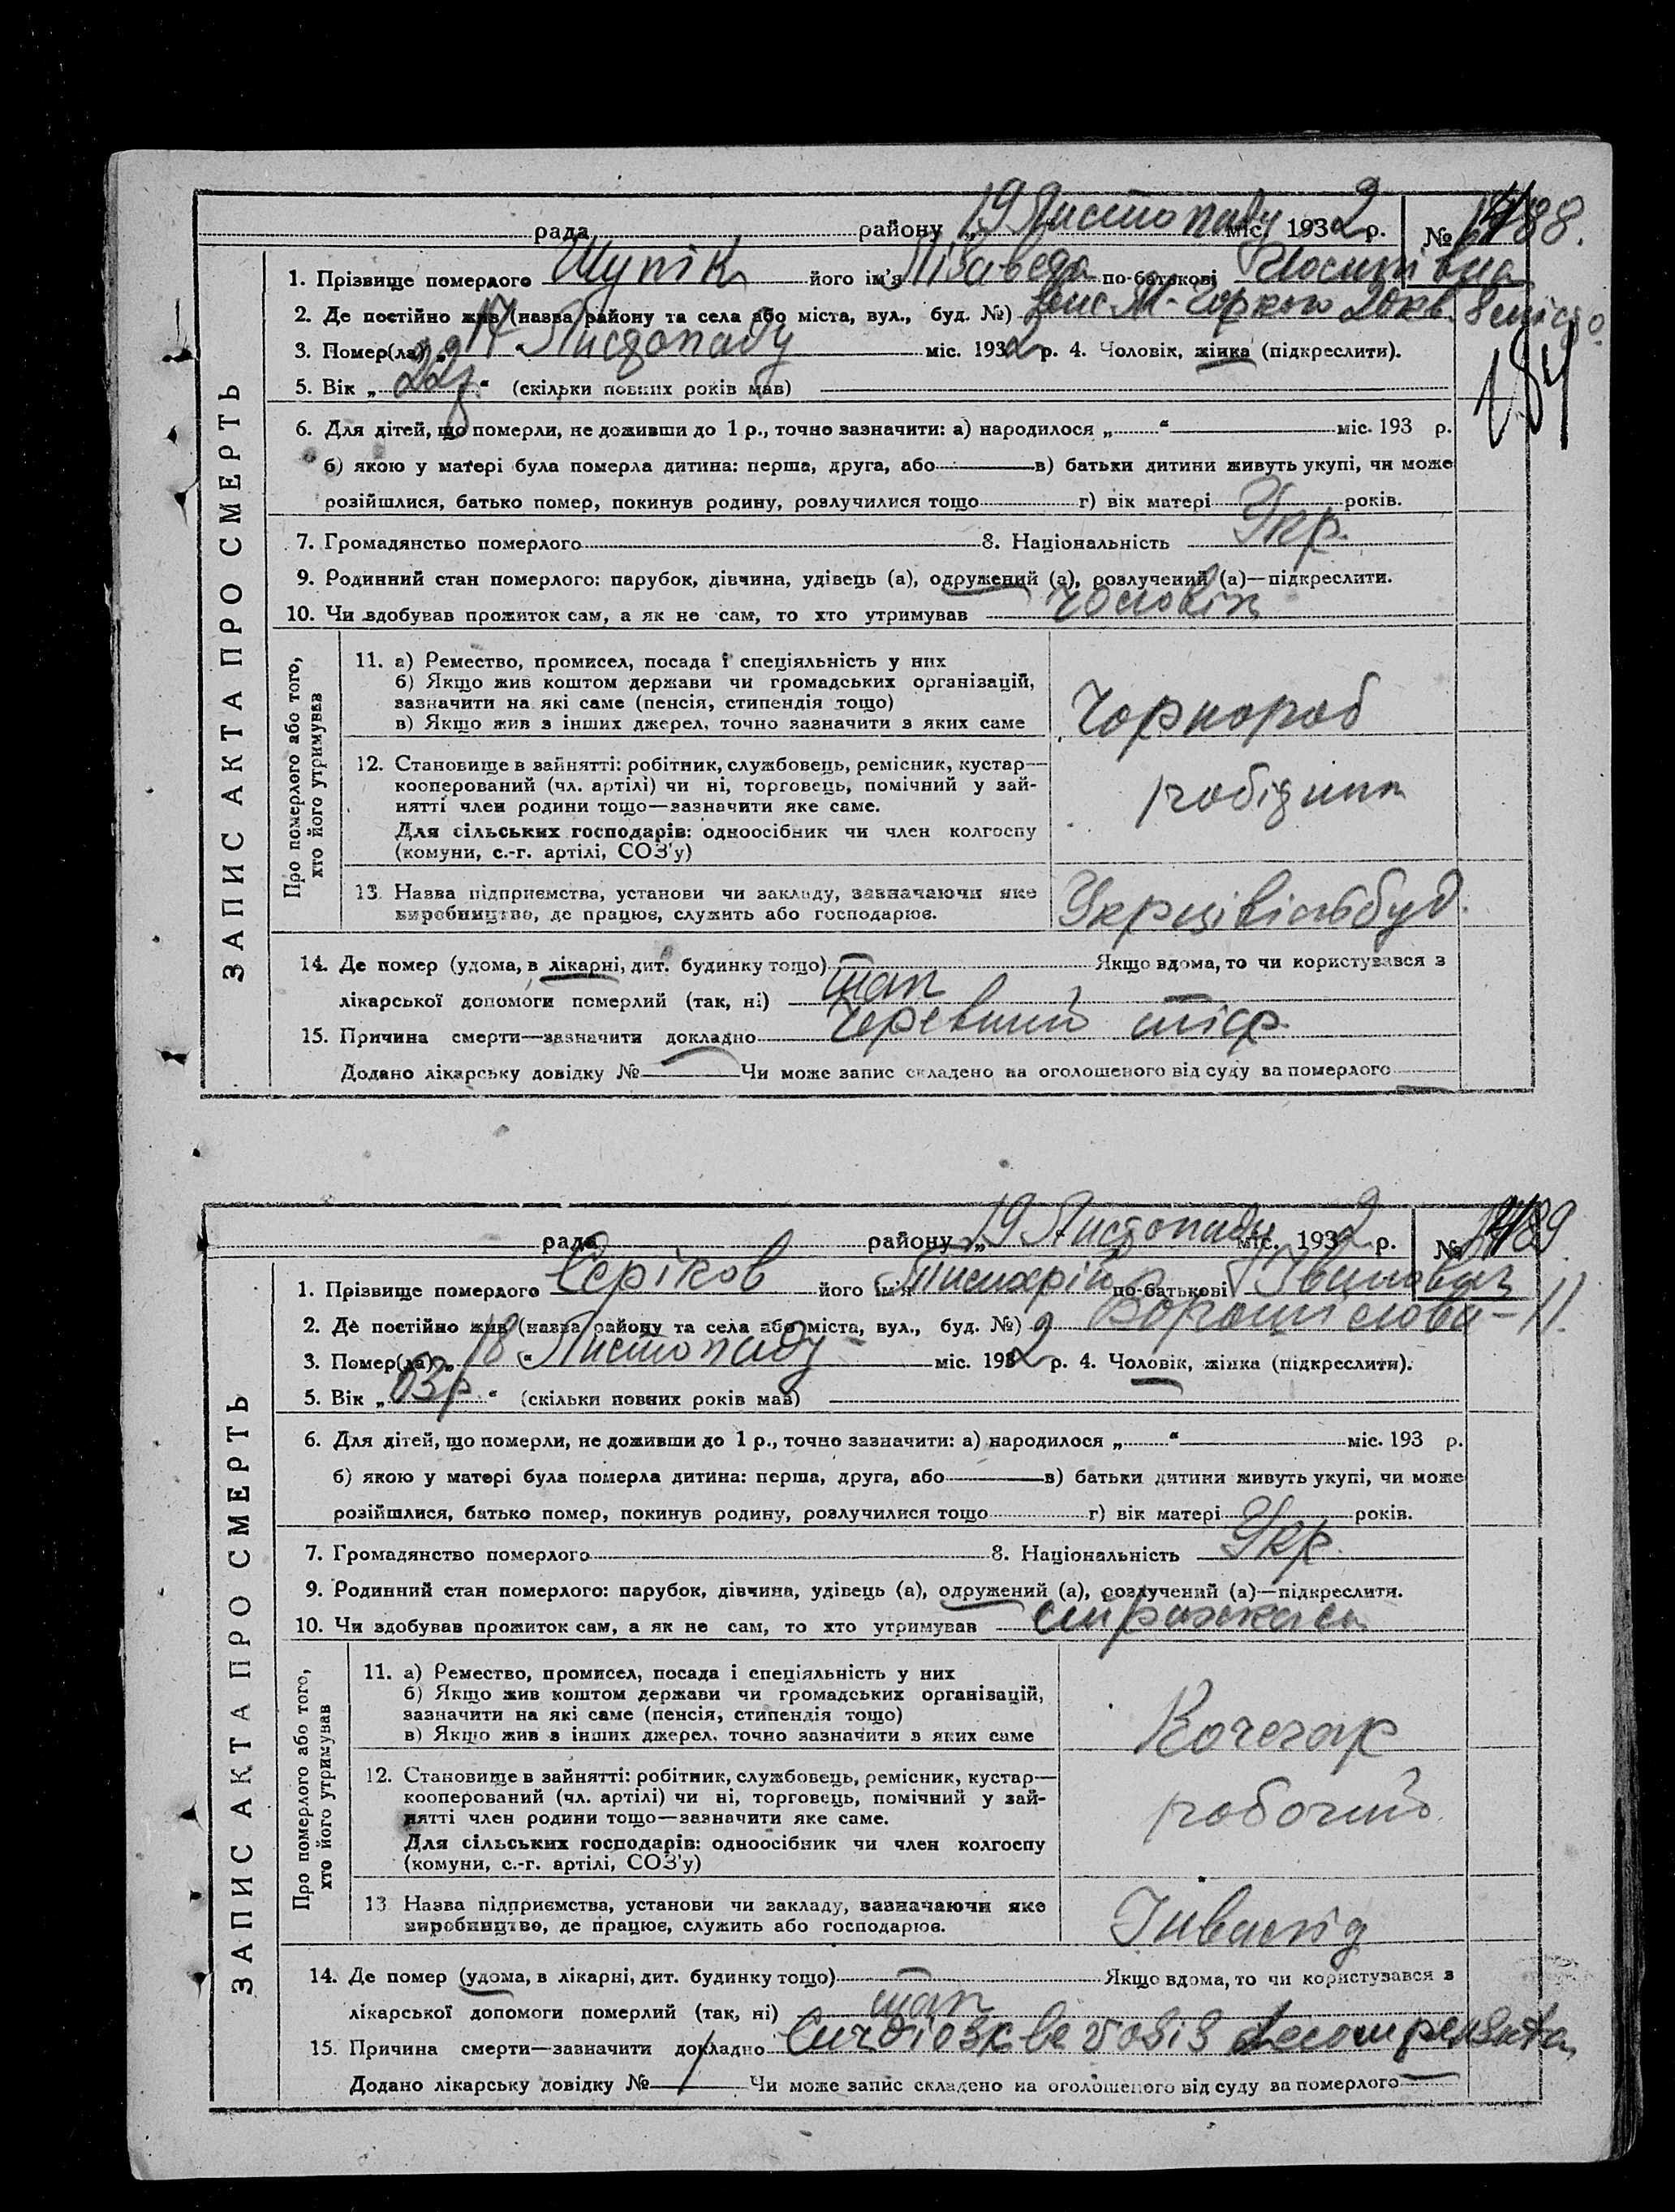 ЗАПИС АКТА ПРО СМЕРТЬ
рада району „19 Листопаду міс. 1932 р. № 1488.
1. Прізвище померлого Шупік його ім'я Лізаведа по-батькові Йосипівна
2. Де постійно жив (назва району та села або міста, вул., буд. №) М-Горкого 20 кв. 8
3. Помер(ла) „17 Листопаду міс. 1932 р. 4. Чоловік, жінка (підкреслити).
184
5. Вік „22р.“ (скільки повних років мав)
6. Для дітей, що померли, не доживши до 1 р., точно зазначити: а) народилося „ “ міс. 193 р.
б) якою у матері була померла дитина: перша, друга, або в) батьки дитини живуть укупі, чи може
розійшлися, батько помер, покинув родину, розлучилися тощо г) вік матері років.
7. Громадянство померлого 8. Національність Укр.
9. Родинний стан померлого: парубок, дівчина, удівець (а), одружений (а), розлучений (а)—підкреслити.
10. Чи здобував прожиток сам, а як не сам, то хто утримував чоловік
Про померлого або того,
хто його утримував
11. а) Ремество, промисел, посада і спеціяльність у них
б) Якщо жив коштом держави чи громадських організацій,
зазначити на які саме (пенсія, стипендія тощо)
в) Якщо жив з інших джерел, точно зазначити з яких саме
Чорнороб
12. Становище в зайнятті: робітник, службовець, ремісник, кустар—
кооперований (чл. артілі) чи ні, торговець, помічний у зай-
нятті член родини тощо—зазначити яке саме.
Для сільських господарів: одноосібник чи член колгоспу
(комуни, с.-г. артілі, СОЗ'у)
робідник
13. Назва підприємства, установи чи закладу, зазначаючи яке
виробництво, де працює, служить або господарює.
Укрцівільбуд.
14. Де помер (удома, в лікарні, дит. будинку тощо) — Якщо вдома, то чи користувався з
лікарської допомоги померлий (так, ні) так —
15. Причина смерти—зазначити докладно Черевний тіф.
Додано лікарську довідку № — Чи може запис складено на оголошеного від суду за померлого —
ЗАПИС АКТА ПРО СМЕРТЬ
рада району „19 Листопаду міс. 1932 р. № 1489.
1. Прізвище померлого Серіков його ім'я по-батькові Іванович
2. Де постійно жив (назва району та села або міста, вул., буд. №) Ворошілова - 11.
3. Помер(ла) „18“ Листопаду - міс. 1932 р. 4. Чоловік, жінка (підкреслити).
5. Вік „63р.“ (скільки повних років мав)
6. Для дітей, що померли, не доживши до 1 р., точно зазначити: а) народилося „ “ міс. 193 р.
б) якою у матері була померла дитина: перша, друга, або в) батьки дитини живуть укупі, чи може
розійшлися, батько помер, покинув родину, розлучилися тощо г) вік матері років.
7. Громадянство померлого 8. Національність Укр.
9. Родинний стан померлого: парубок, дівчина, удівець (а), одружений (а), розлучений (а)—підкреслити.
10. Чи здобував прожиток сам, а як не сам, то хто утримував страхкаса
Про померлого або того,
хто його утримував
11. а) Ремество, промисел, посада і спеціяльність у них
б) Якщо жив коштом держави чи громадських організацій,
зазначити на які саме (пенсія, стипендія тощо)
в) Якщо жив з інших джерел, точно зазначити з яких саме
Кочегар
12. Становище в зайнятті: робітник, службовець, ремісник, кустар—
кооперований (чл. артілі) чи ні, торговець, помічний у зай-
нятті член родини тощо—зазначити яке саме.
Для сільських господарів: одноосібник чи член колгоспу
(комуни, с.-г. артілі, СОЗ'у)
робочий
13. Назва підприємства, установи чи закладу, зазначаючи яке
виробництво, де працює, служить або господарює.
Інвалід
14. Де помер (удома, в лікарні, дит. будинку тощо) — Якщо вдома, то чи користувався з
лікарської допомоги померлий (так, ні) так
15. Причина смерти—зазначити докладно
Додано лікарську довідку № Чи може запис складено на оголошеного від суду за померлого —